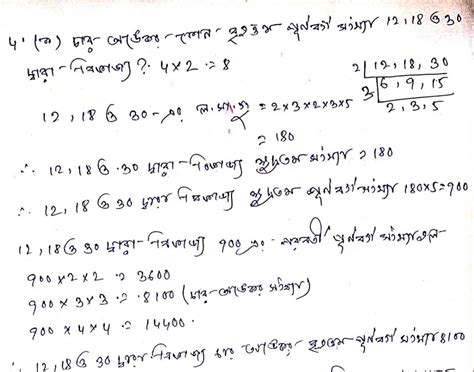 4. (ক) চার অঙ্কের কোন বৃহত্তম পূর্ণবর্গ সংখ্যা 12, 18 ও 30
দ্বারা বিভাজ্য ? 4 x 2 = 8
2 | 12, 18, 30
3 | 6, 9, 15
2, 3, 5
12, 18 ও 30-এর ল.সা.গু = 2 x 3 x 2 x 3 x 5
= 180
∴ 12, 18 ও 30 দ্বারা বিভাজ্য ক্ষুদ্রতম সংখ্যা = 180
∴ 12, 18 ও 30 দ্বারা বিভাজ্য ক্ষুদ্রতম পূর্ণবর্গ সংখ্যা 180 x 5 = 900
12, 18 ও 30 দ্বারা বিভাজ্য 900 এর পরবর্তী পূর্ণবর্গ সংখ্যাগুলি
900 x 2 x 2 = 3600
900 x 3 x 3 = 8100 (চার অঙ্কের সংখ্যা)
900 x 4 x 4 = 14400
∴ 12, 18 ও 30 দ্বারা বিভাজ্য চার অঙ্কের বৃহত্তম পূর্ণবর্গ সংখ্যা 8100